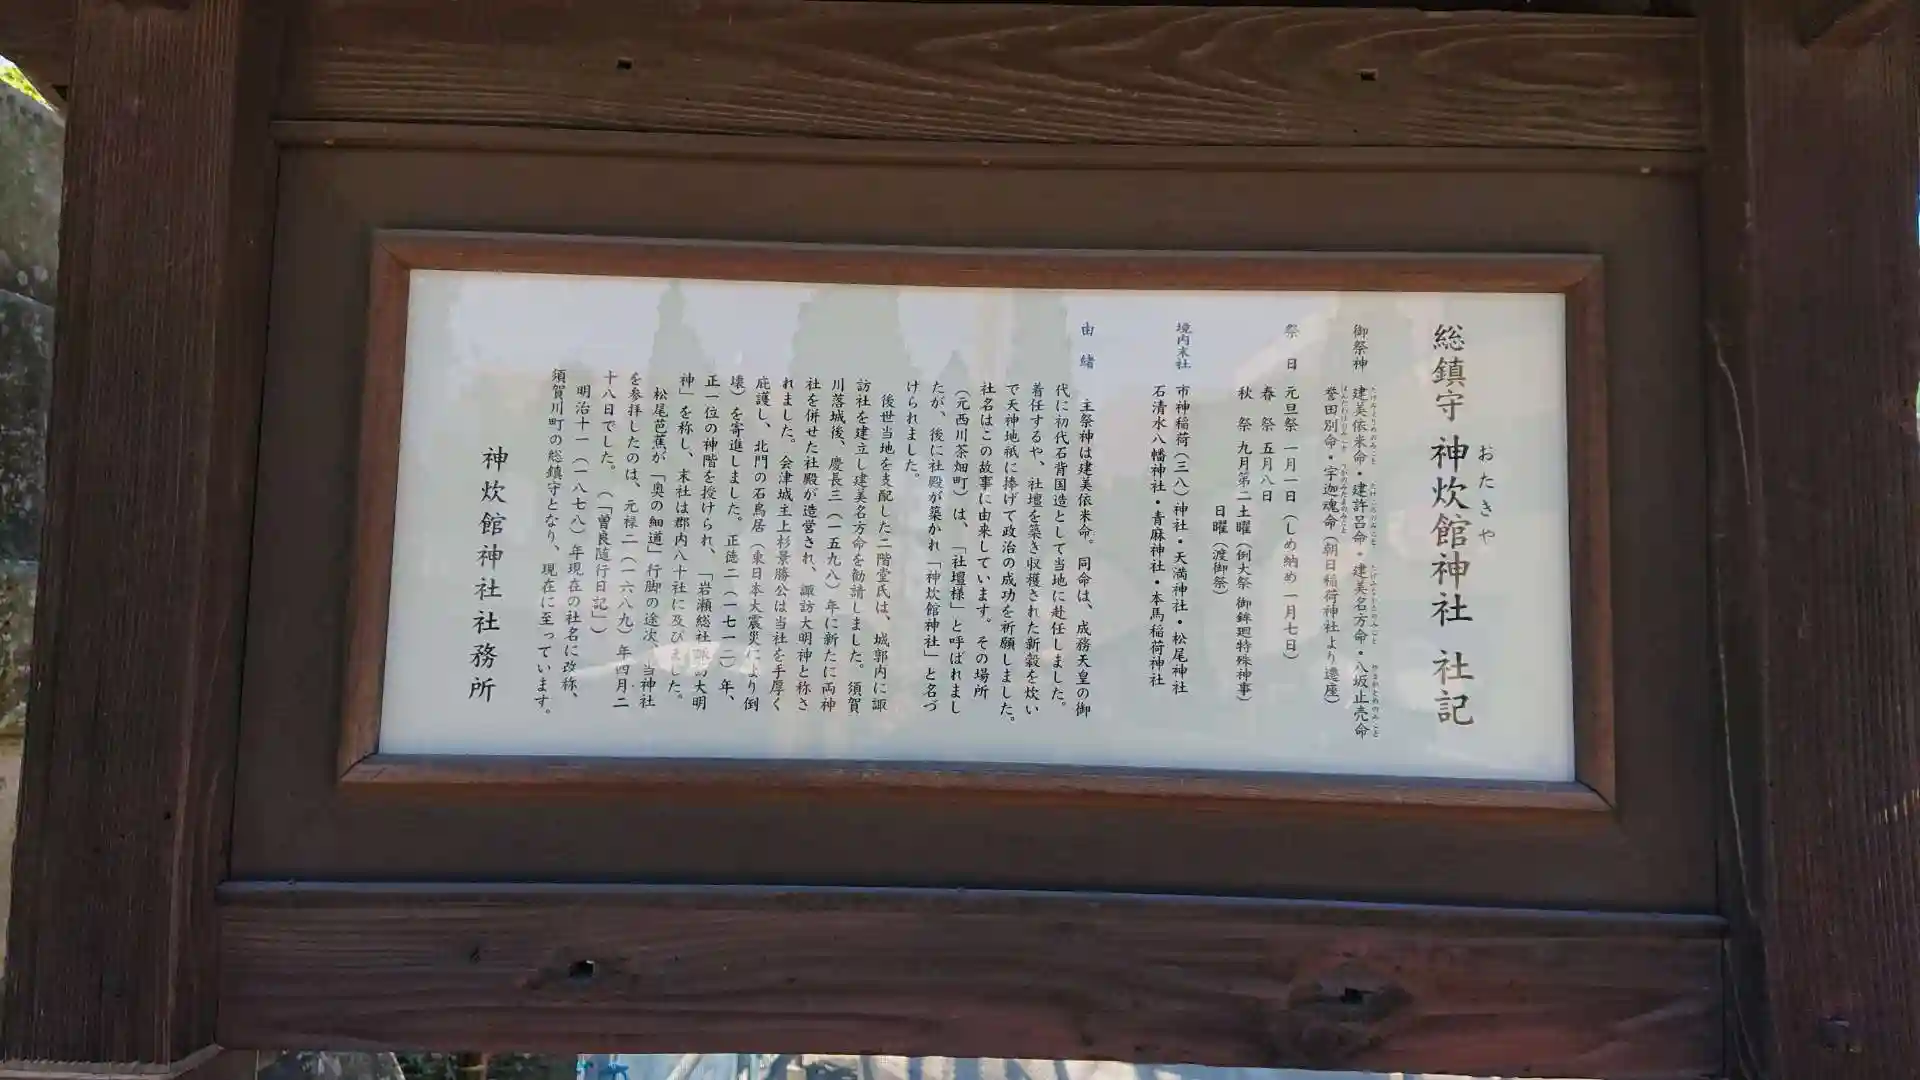 総鎮守 神炊館神社 社記
おたきや
御祭神 建美依米命・建許呂命・建美名方命・八坂止売命
誉田別命・宇迦魂命(朝日稲荷神社より遷座)
祭 日 元旦祭 一月一日(しめ納め 一月七日)
春 祭 五月八日
秋 祭 九月第二土曜(例大祭 御鉾廻特殊神事)
日曜(渡御祭)
境内末社 市神稲荷(三八)神社・天満神社・松尾神社
石清水八幡神社・青麻神社・本馬稲荷神社
由 緒
主祭神は建美依米命。同命は、成務天皇の御
代に初代石背国造として当地に赴任しました。
着任するや、社壇を築き収穫された新穀を炊い
で天神地祇に捧げて政治の成功を祈願しました。
社名はこの故事に由来しています。その場所
(元西川茶畑町)は、「社壇様」と呼ばれまし
たが、後に社殿が築かれ「神炊館神社」と名づ
けられました。
後世当地を支配した二階堂氏は、城郭内に諏
訪社を建立し建美名方命を勧請しました。須賀
川落城後、慶長三(一五九八)年に新たに両神
社を併せた社殿が造営され、諏訪大明神と称さ
れました。会津城主上杉景勝公は当社を手厚く
庇護し、北門の石鳥居(東日本大震災により倒
壊)を寄進しました。正徳二(一七一二)年、
正一位の神階を授けられ、「岩瀬総社諏訪大明
神」を称し、末社は郡内八十社に及びました。
松尾芭蕉が「奥の細道」行脚の途次、当神社
を参拝したのは、元禄二(一六八九)年四月二
十八日でした。(「曽良随行日記」)
明治十一(一八七八)年現在の社名に改称、
須賀川町の総鎮守となり、現在に至っています。
神炊館神社社務所